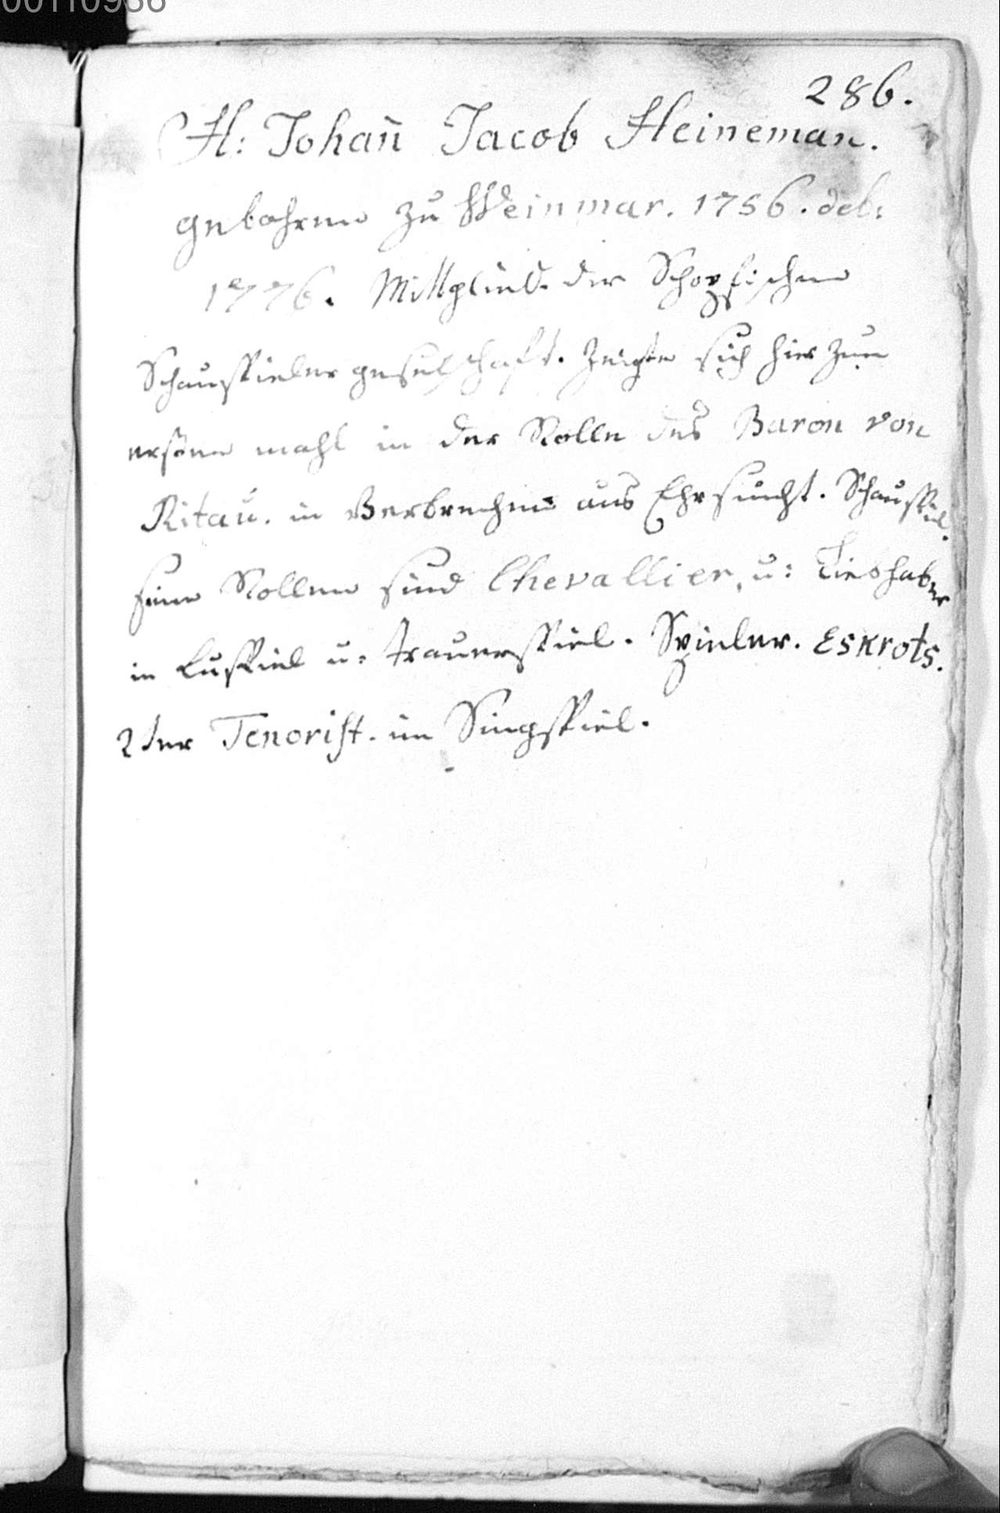 00110936
286.
H: Johan̄ Jacob Heineman.
gebohren zu Weinmar. 1756. deb:
1776. Mittglied. der Schopfischen
Schauspieler geselschaft. Zeigte sich hier zum
ersten mahl in der Rolle des Baron von
Ritau. in Verbrechen aus Ehrsucht. Schauspiel.
seine Rollen sind Chevallier, u: Liebhaber
in Luspiel u: trauerspiel. Spieler. Eskrots.
2ter Tenorist. im Singspiel.